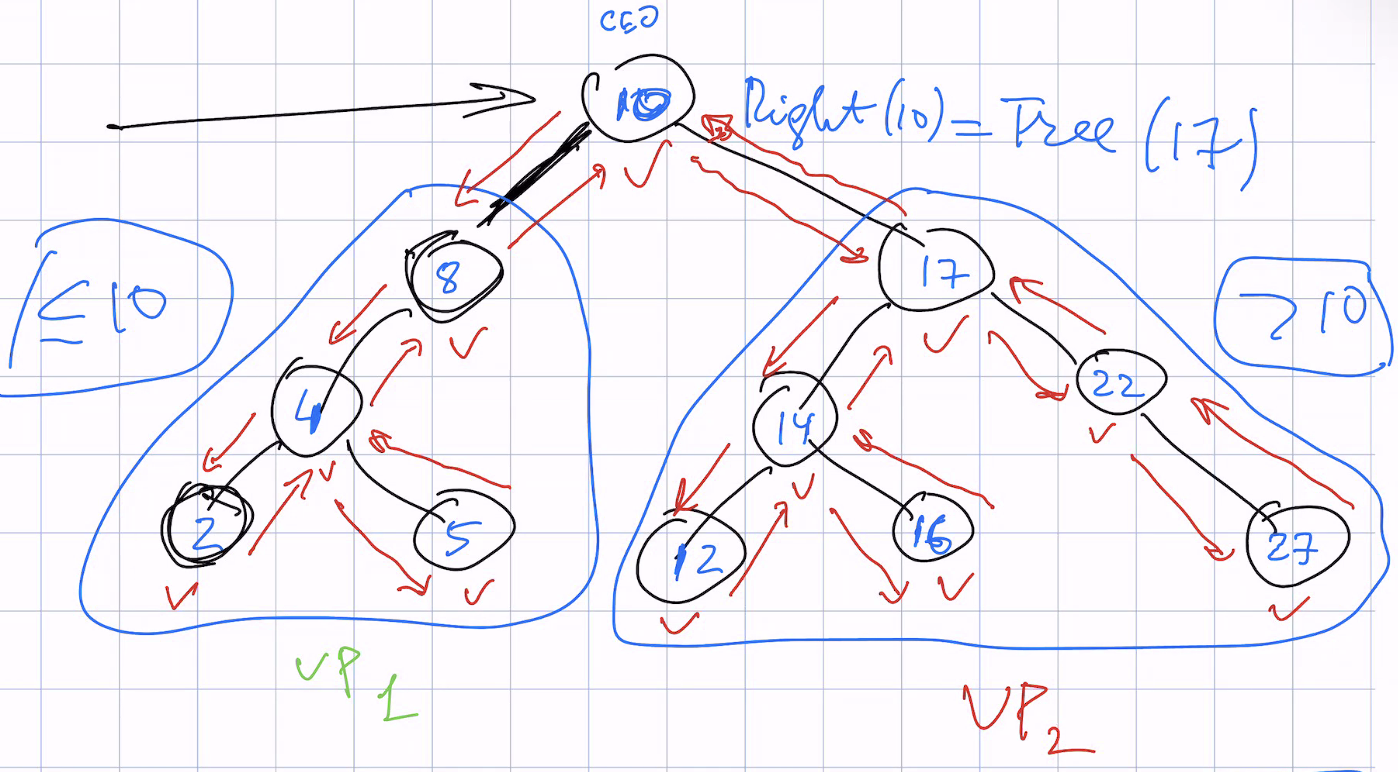 CEO
10
Right (10) = Tree (17)
≤ 10
8
17
> 10
4
14
22
2
5
12
16
27
VP1
VP2